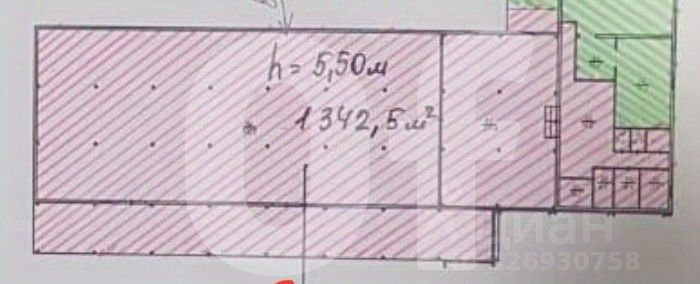 h = 5,50м
1342,5 м²
циан
26930758